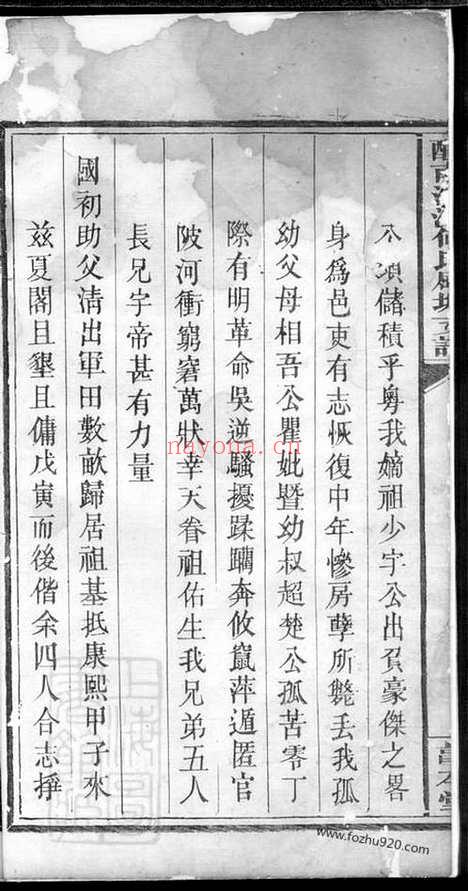 不須儲積乎粤我嫡祖少宇公出負豪傑之畧
身爲邑吏有志恢復中年慘房孽所斃丟我孤
幼父母相吾公瞿妣暨幼叔超楚公孤苦零丁
際有明革命吳逆騷擾蹂躪奔攸竄萍遁匿官
陂河衝窮窘萬狀幸天眷祖佑生我兄弟五人
長兄宇帝甚有力量
國初助父清出軍田數畝歸居祖基抵康熙甲子來
玆夏閣且墾且傭戊寅而後偕余四人合志掙
nayona.cn
www.fozhu920.com